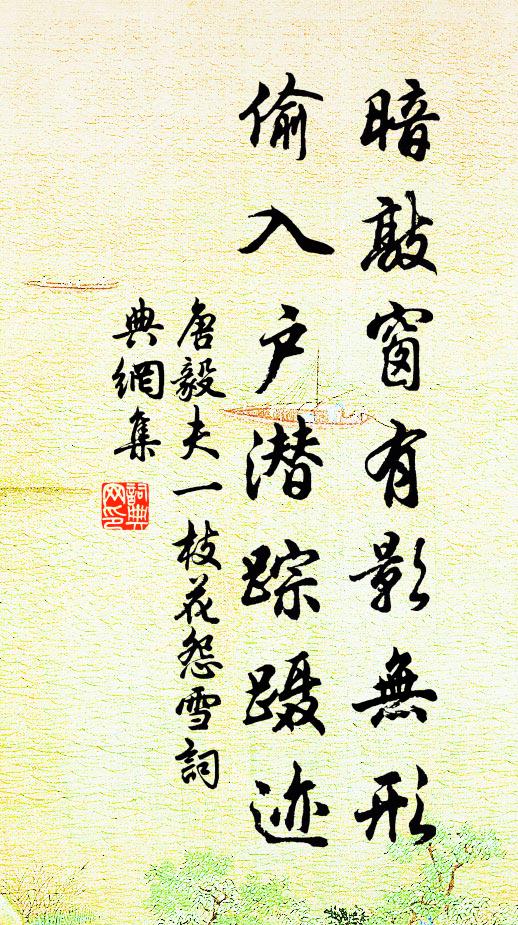 暗敲窗有影無形
偷入户潜踪蹑迹
唐毅夫一枝花怨雪詞
典網集
詞典
网印